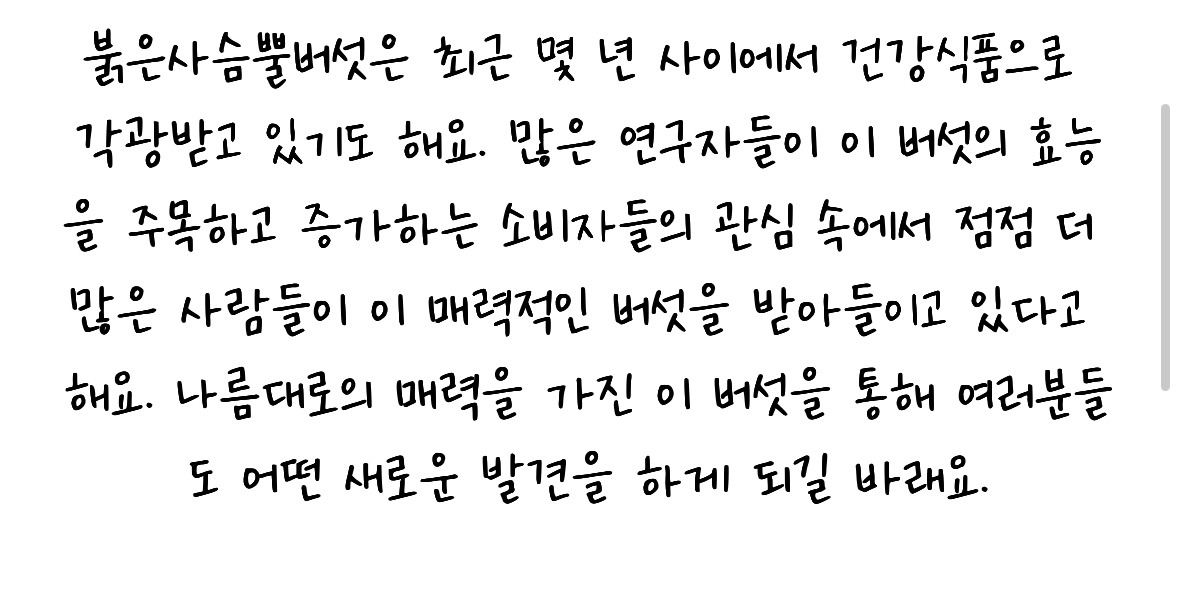 붉은사슴뿔버섯은 최근 몇 년 사이에서 건강식품으로
각광받고 있기도 해요. 많은 연구자들이 이 버섯의 효능
을 주목하고 증가하는 소비자들의 관심 속에서 점점 더
많은 사람들이 이 매력적인 버섯을 받아들이고 있다고
해요. 나름대로의 매력을 가진 이 버섯을 통해 여러분들
도 어떤 새로운 발견을 하게 되길 바래요.